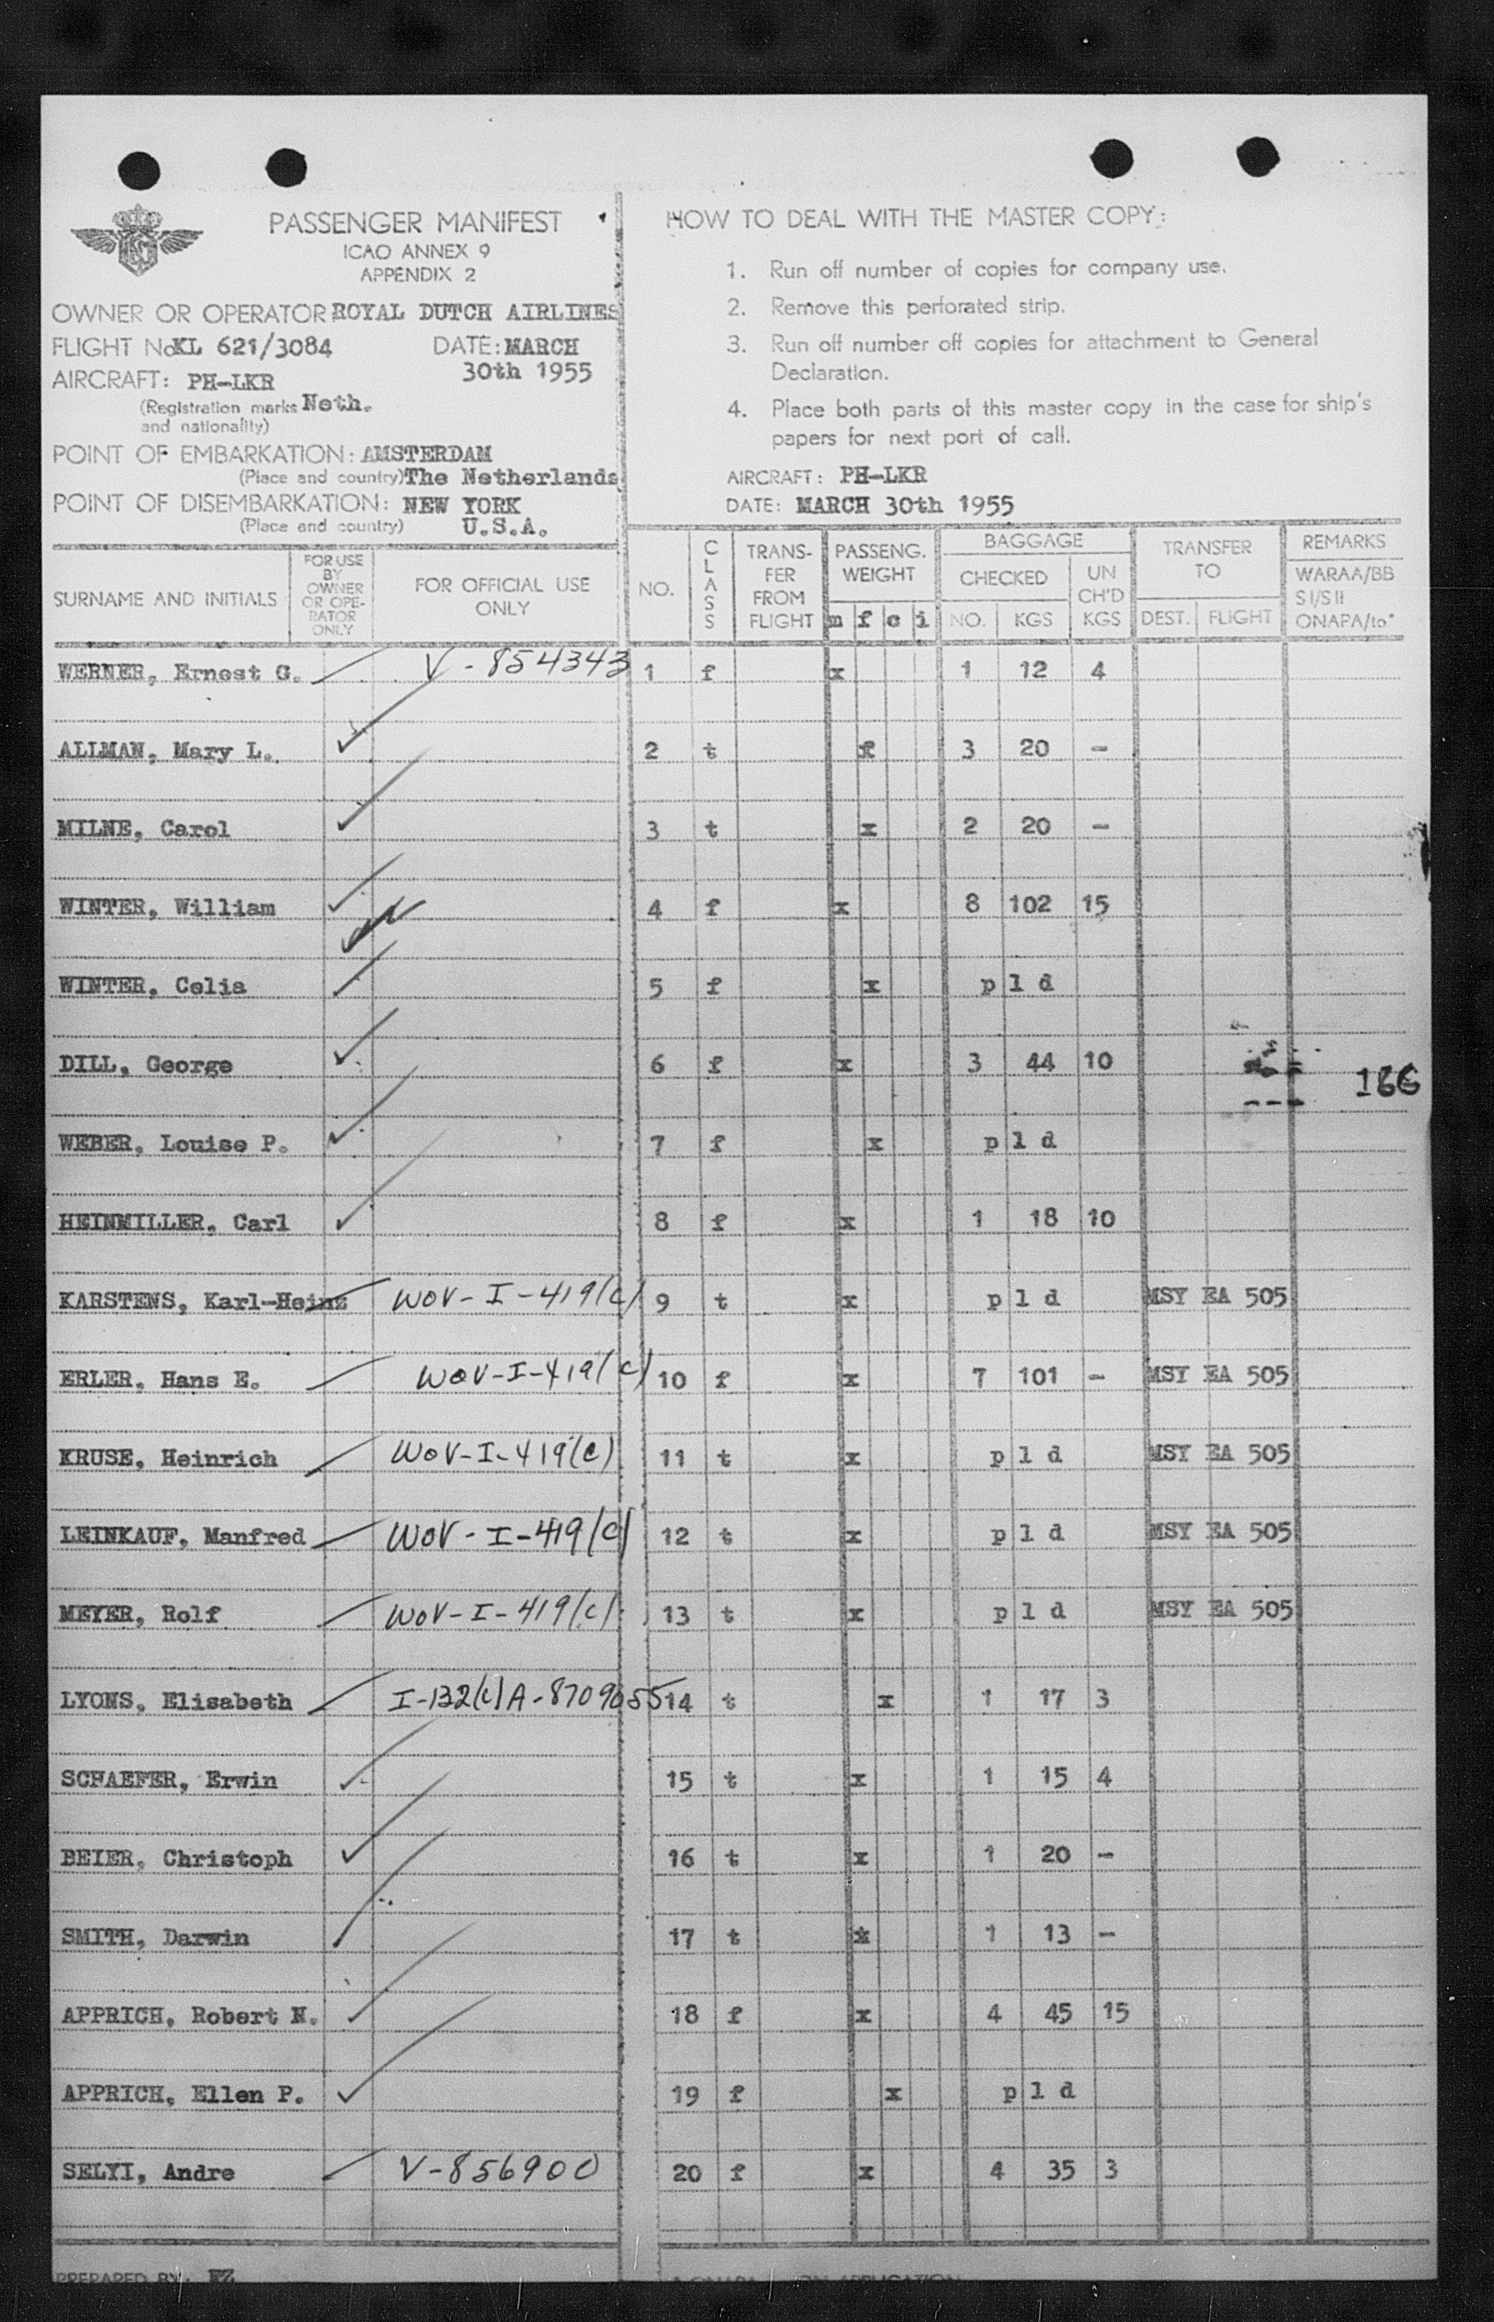 PASSENGER MANIFEST
ICAO ANNEX 9
APPENDIX 2
OWNER OR OPERATOR ROYAL DUTCH AIRLINES
FLIGHT No KL 621/3084 DATE: MARCH
30th 1955
AIRCRAFT: PH-LKR
(Registration marks Neth.
and nationality)
POINT OF EMBARKATION: AMSTERDAM
(Place and country) The Netherlands
POINT OF DISEMBARKATION: NEW YORK
(Place and country) U.S.A.
HOW TO DEAL WITH THE MASTER COPY:
1. Run off number of copies for company use.
2. Remove this perforated strip.
3. Run off number off copies for attachment to General
Declaration.
4. Place both parts of this master copy in the case for ship's
papers for next port of call.
AIRCRAFT: PH-LKR
DATE: MARCH 30th 1955
SURNAME AND INITIALS
FOR USE
BY
OWNER
OR OPE-
RATOR
ONLY
FOR OFFICIAL USE
ONLY
NO.
CLASS
TRANS-
FER
FROM
FLIGHT
PASSENG.
WEIGHT
m f c i
BAGGAGE
CHECKED
NO. KGS
UN
CH'D
KGS
TRANSFER
TO
DEST. FLIGHT
REMARKS
WARAA/BB
SI/SII
ONAPA/to*
WERNER, Ernest G. V-854343 1 f x 1 12 4
ALLMAN, Mary L. 2 t f 3 20 -
MILNE, Carol 3 t x 2 20 -
WINTER, William 4 f x 8 102 15
WINTER, Celia 5 f x p l d
DILL, George 6 f x 3 44 10
166
WEBER, Louise P. 7 f x p l d
HEINMILLER, Carl 8 f x 1 18 10
KARSTENS, Karl-Heinz WOV-I-419(C) 9 t x p l d MSY EA 505
ERLER, Hans E. WOV-I-419(C) 10 f x 7 101 - MSY EA 505
KRUSE, Heinrich WOV-I-419(C) 11 t x p l d MSY EA 505
LEINKAUF, Manfred WOV-I-419(C) 12 t x p l d MSY EA 505
MEYER, Rolf WOV-I-419(C) 13 t x p l d MSY EA 505
LYONS, Elisabeth I-132(c)A-8709655 14 t x 1 17 3
SCHAEFER, Erwin 15 t x 1 15 4
BEIER, Christoph 16 t x 1 20 -
SMITH, Darwin 17 t x 1 13 -
APPRICH, Robert N. 18 f x 4 45 15
APPRICH, Ellen P. 19 f x p l d
SELYI, Andre V-856900 20 f x 4 35 3
PREPARED BY: EZ